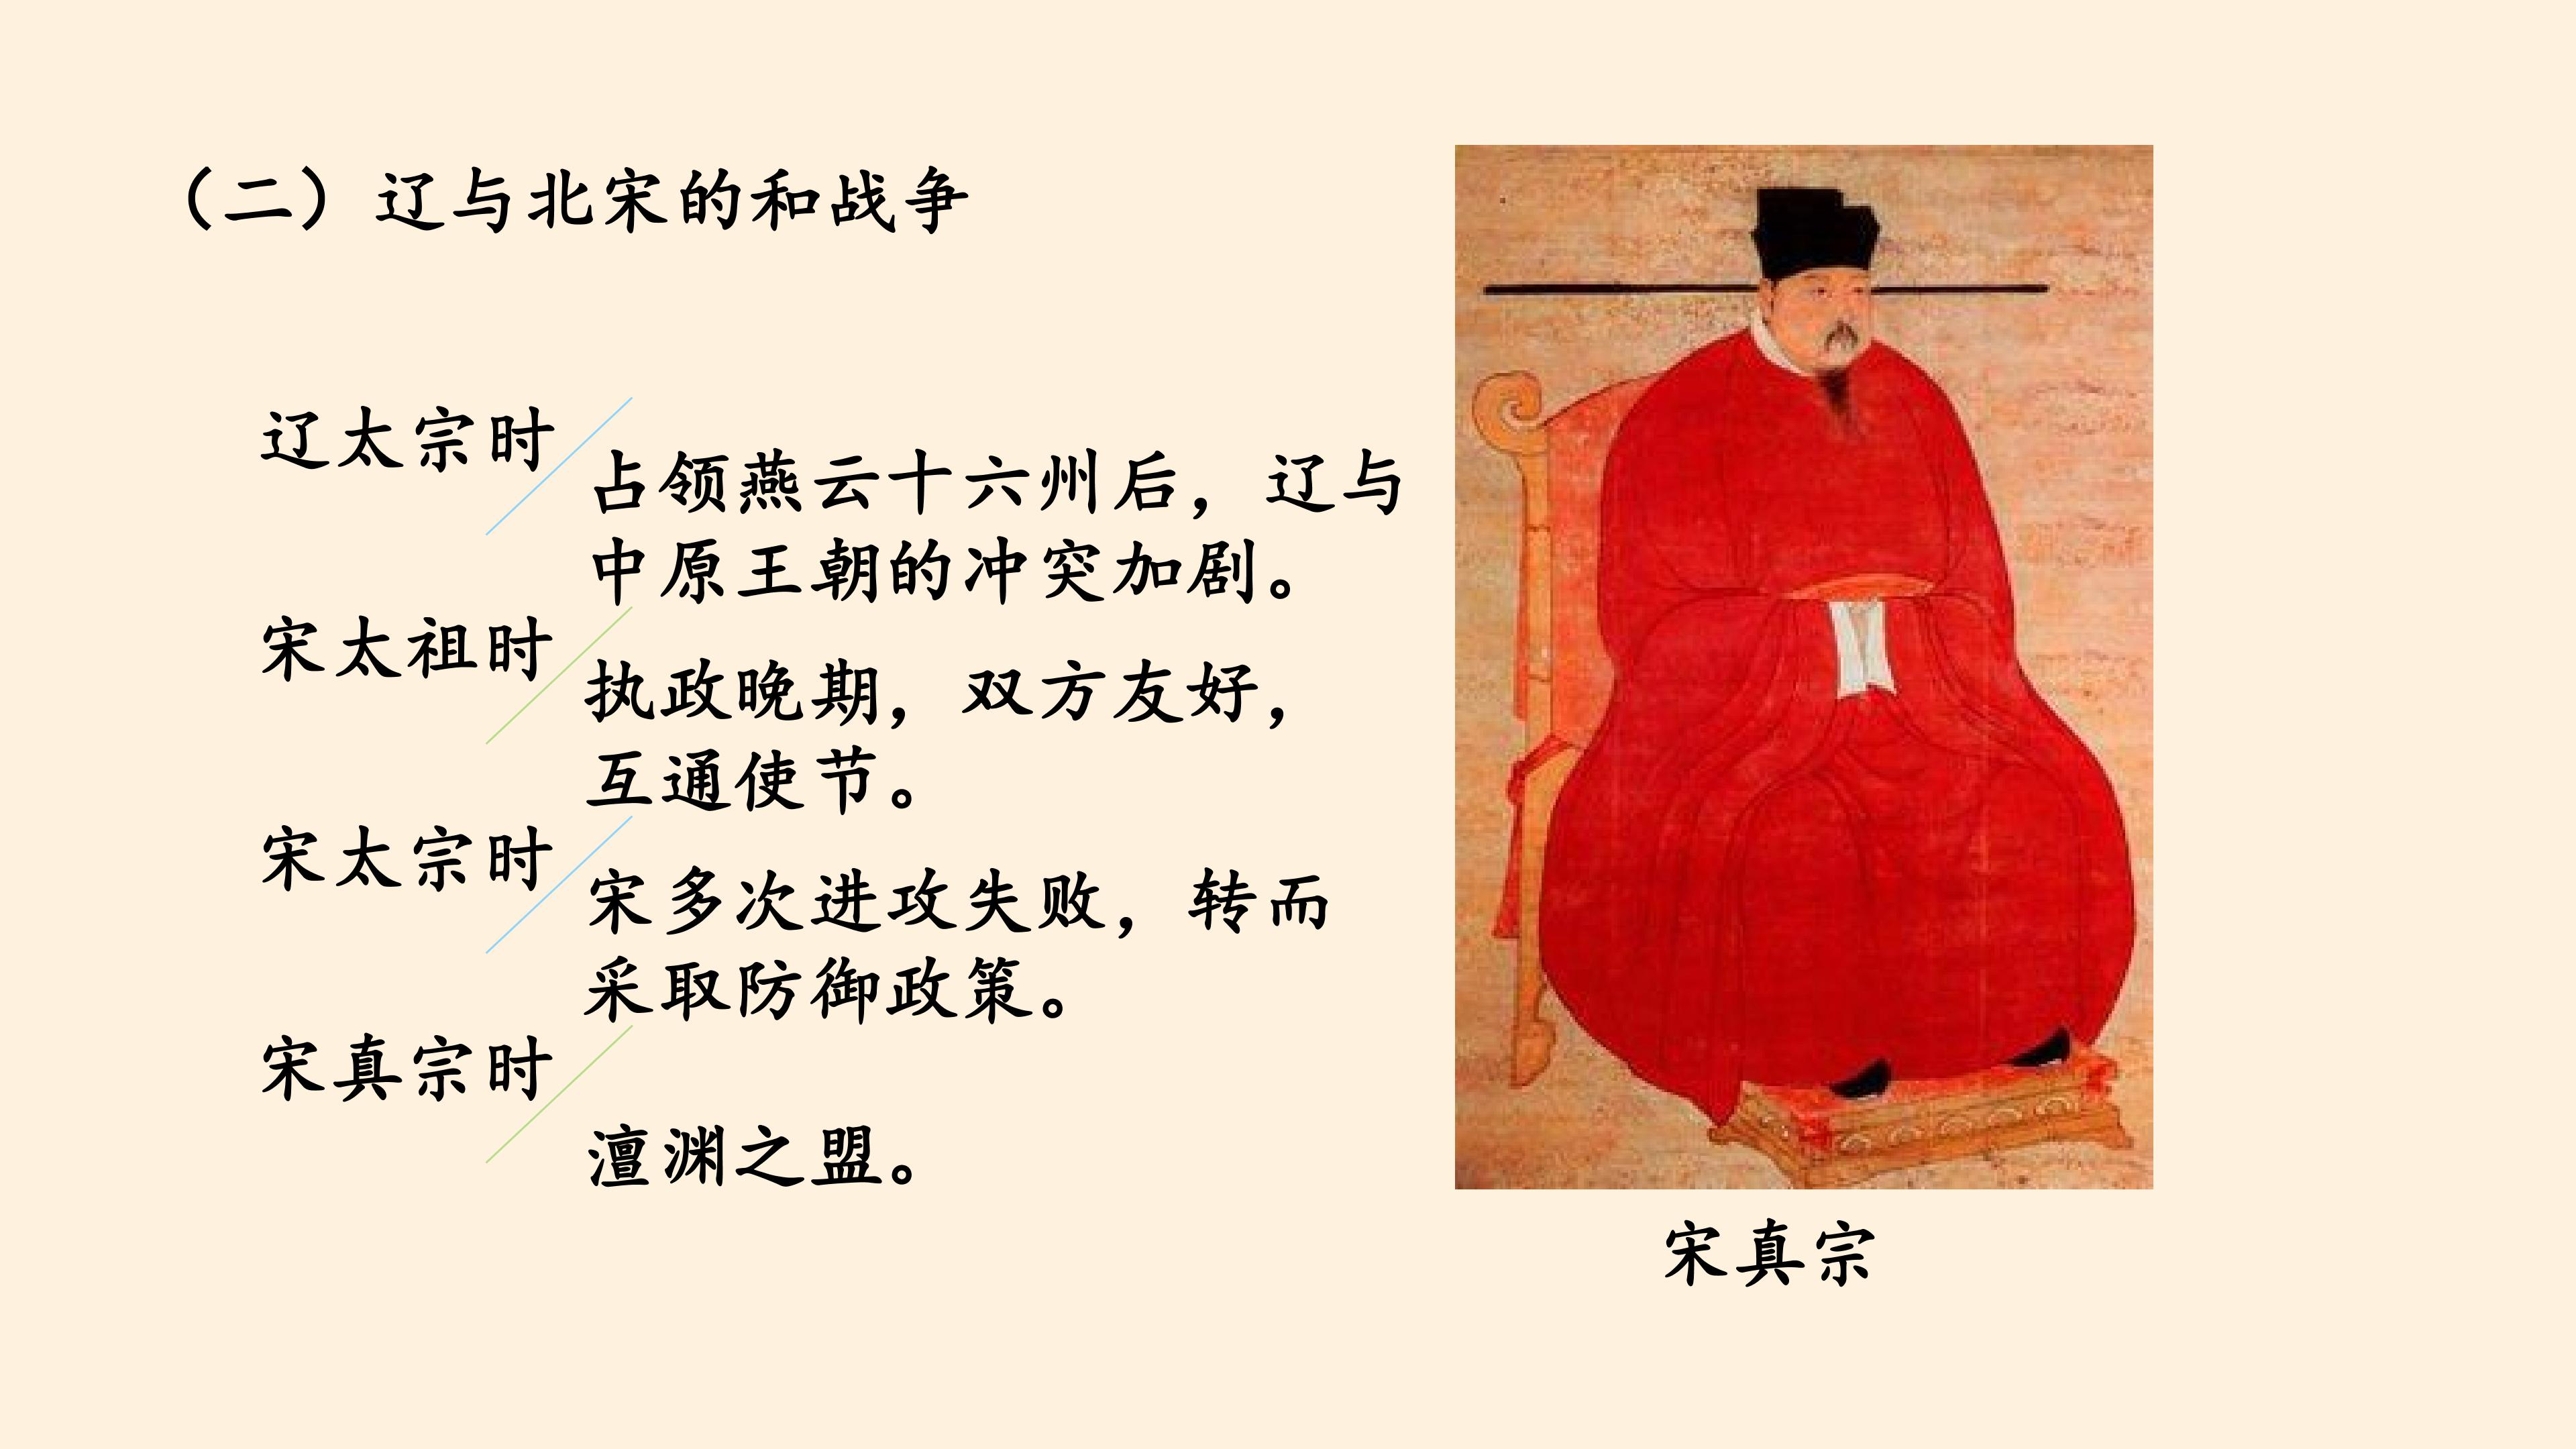 （二）辽与北宋的和战争
辽太宗时
占领燕云十六州后，辽与
中原王朝的冲突加剧。
宋太祖时
执政晚期，双方友好，
互通使节。
宋太宗时
宋多次进攻失败，转而
采取防御政策。
宋真宗时
澶渊之盟。
宋真宗